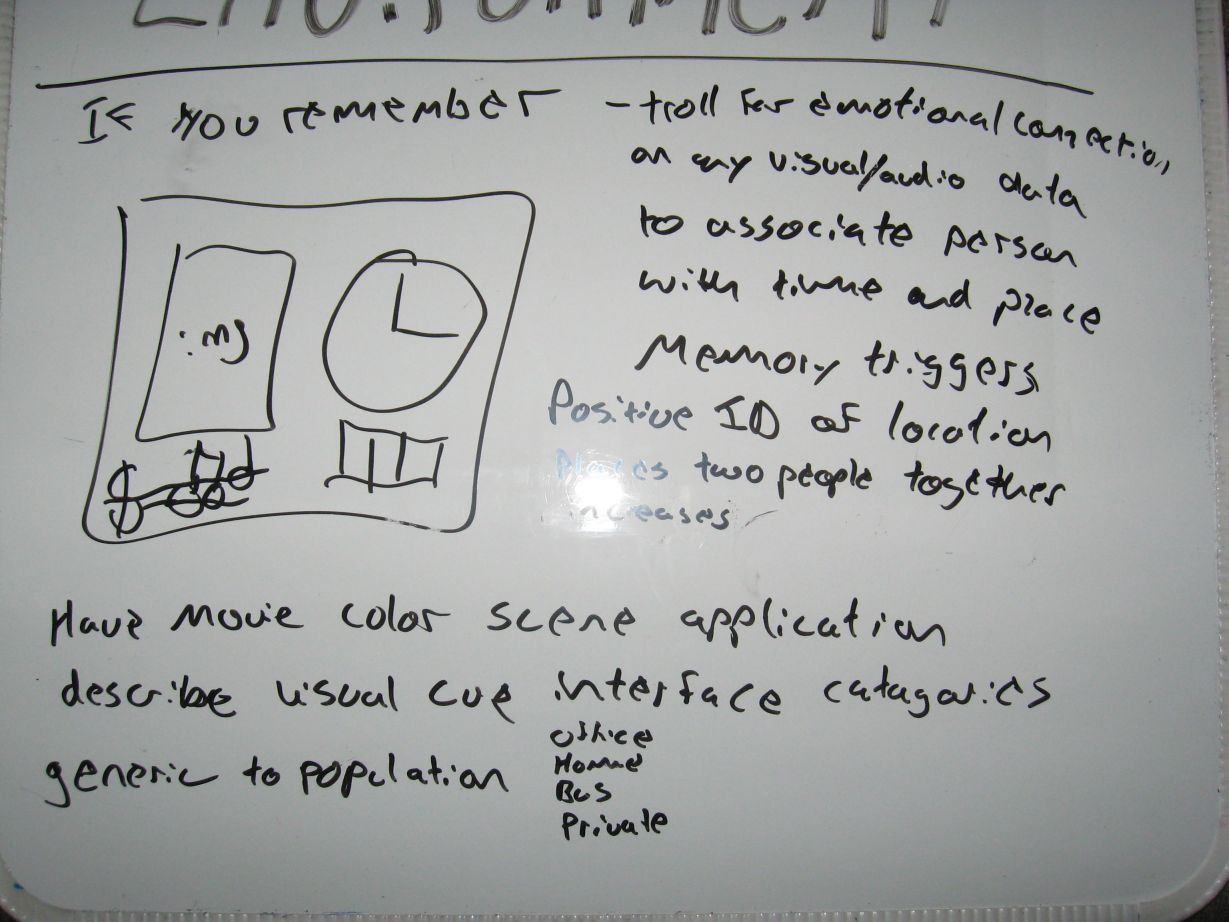 ENVIRONMENT
If you remember
- troll for emotional connection
on any visual/audio data
to associate person
with time and place
Memory triggers
Positive ID of location
Places two people together
increases
img
$
Have movie color scene application
describe visual cue interface catagories
generic to population
Office
Home
Bus
Private